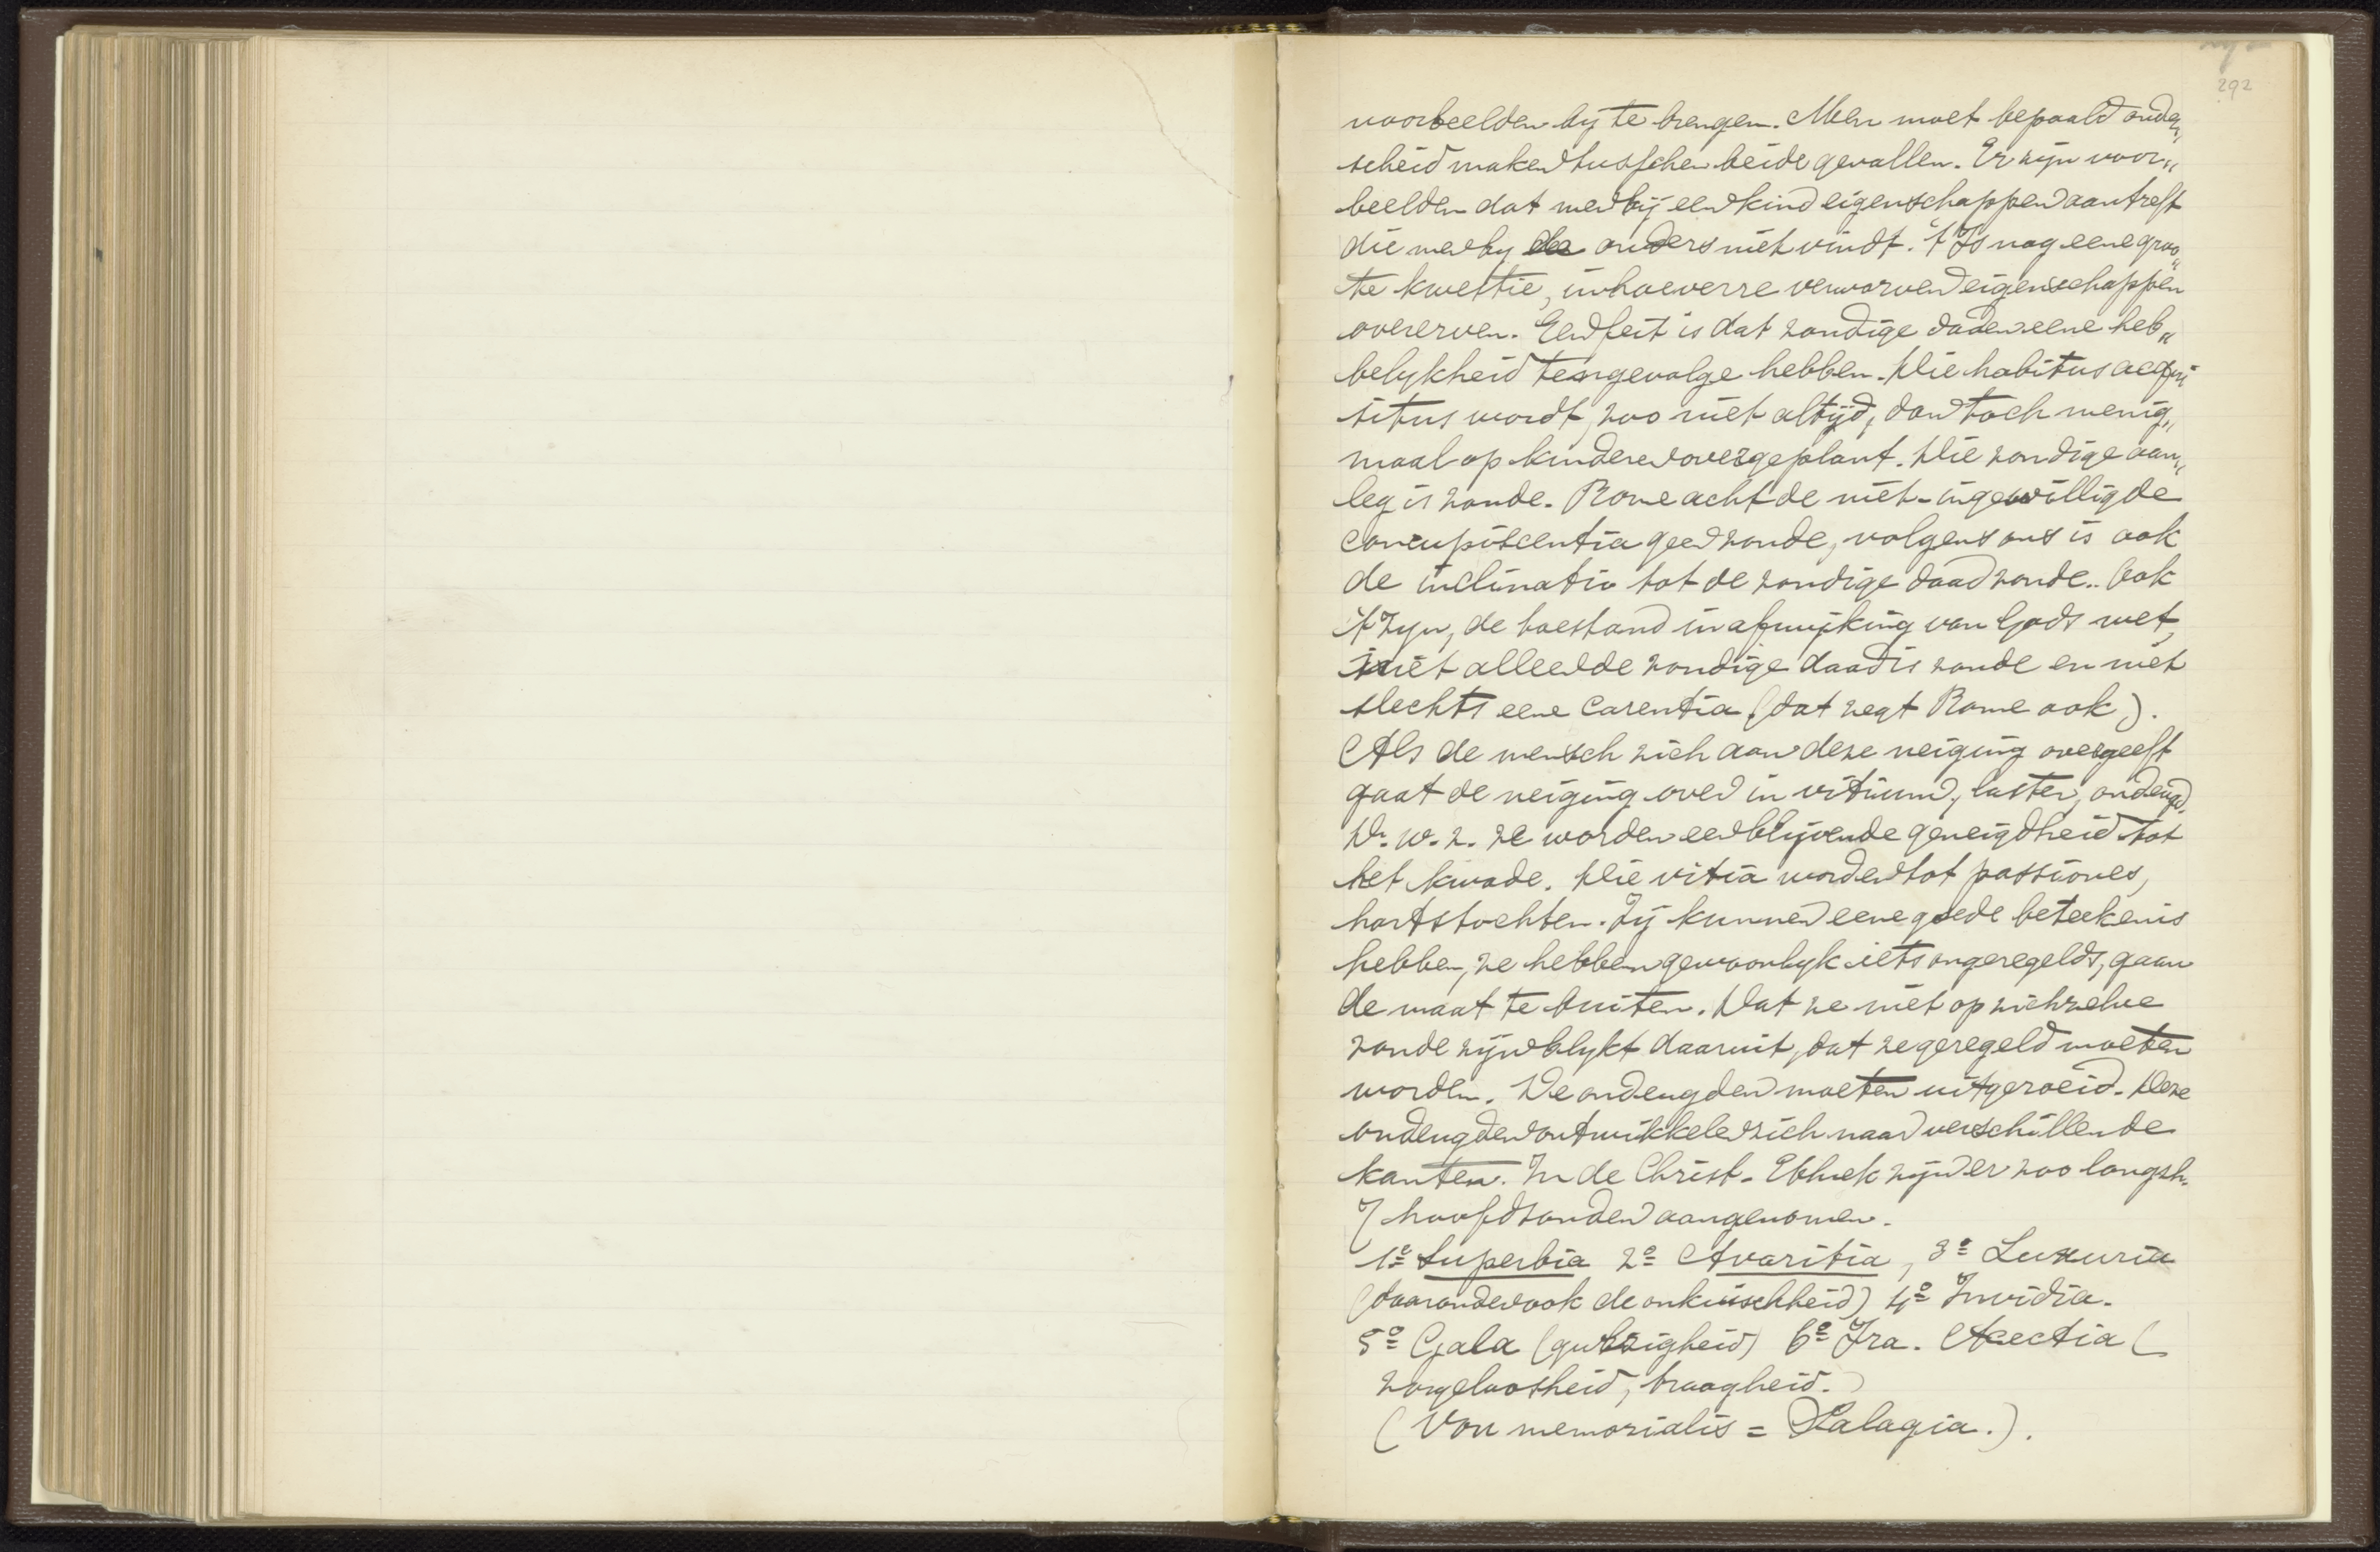 292
voorbeelden by te brengen. Men moet bepaald onder„
scheid maken tusschen beide gevallen. Er zyn voor„
beelden dat men bij een kind eigenschappen aantreft
die men by de ouders niet vindt. 't Is nog eene groo„
te kwestie, inhoeverre verworven eigenschappen
overerven. Een feit is dat zondige daden eene heb„
belykheid tengevolge hebben. Die habitus acqui
situs wordt, zoo niet altijd, dan toch menig„
maal op kinderen overgeplant. Die zondige aan„
leg is zonde. Rome acht de niet-ingewilligde
concupiscentia geen zonde, volgens ons is ook
de inclinatio tot de zondige daad zonde. Ook
't zyn, de toestand in afwijking van Gods wet,
niet alleen de zondige daad is zonde en niet
slechts eene carentia (dat zegt Rome ook).
Als de mensch zich aan deze neiging overgeeft
gaat de neiging over in vitium, laster, ondeugd,
D. w. z. ze worden een blijvende geneigdheid tot
het kwade. Die vitia worden tot passiones,
hartstochten. Zij kunnen eene goede beteekenis
hebben, ze hebben gewoonlyk iets ongeregelds, gaan
de maat te buiten. Dat ze niet op zichzelve
zonde zijn blykt daaruit, dat ze geregeld moeten
worden. De ondeugden moeten uitgeroeid. Deze
ondeugden ontwikkelen zich naar verschillende
kanten. In de Christ. Ethiek zijn er zoo langzh.
7 hoofdzonden aangenomen.
1º Superbia 2º Avaritia, 3º Luxuria
(daaronder ook de onkuischheid) 4º Invidia.
5º Gala (gulzigheid) 6º Ira. Acectia (
zorgeloosheid, traagheid.)
(Vou memorialis = Salagia.).